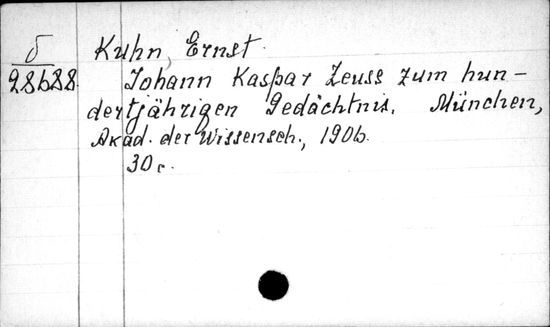 δ
28688
Kuhn, Ernst.
Johann Kaspar Zeuss zum hun-
dertjährigen Gedächtnis. München,
Akad. der Wissensch., 1906.
30 с.